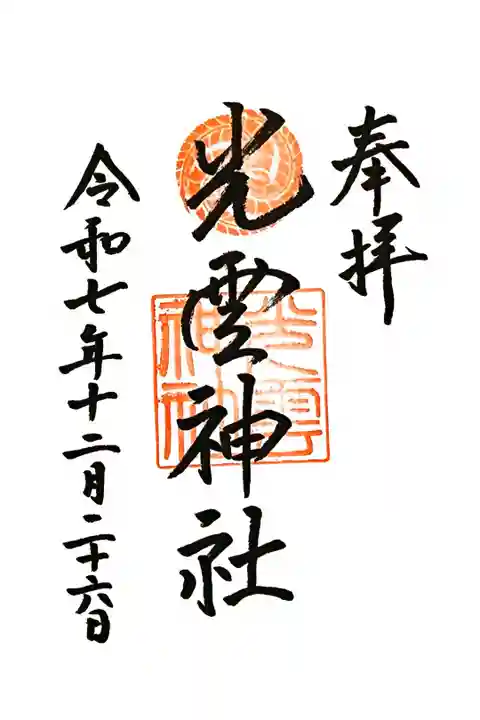 奉拝
光雲神社
令和七年十二月二十六日
光雲神社